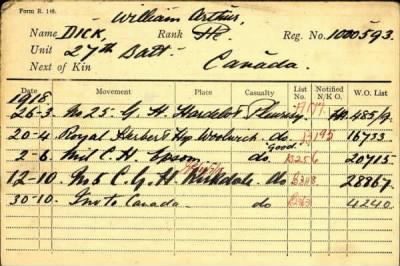 Form R. 146.
William Arthur,
Name DICK, Rank Pte. Reg. No. 1000593.
Unit 27th Batt.
Next of Kin Canada.
Date Movement Place Casualty List No. Notified N/K.O. W.O. List
1918
26-3 No 25 G. H. Hardelot Pleurisy. HA 485/9
20-4 Royal Herbert Hp Woolwich do. B195 16733
"Good"
2-6 Mil C. H. Epsom do B256 20715
12-10 No 5 C. G. H Kirkdale do 28867
30-10 Inv to Canada do 4240